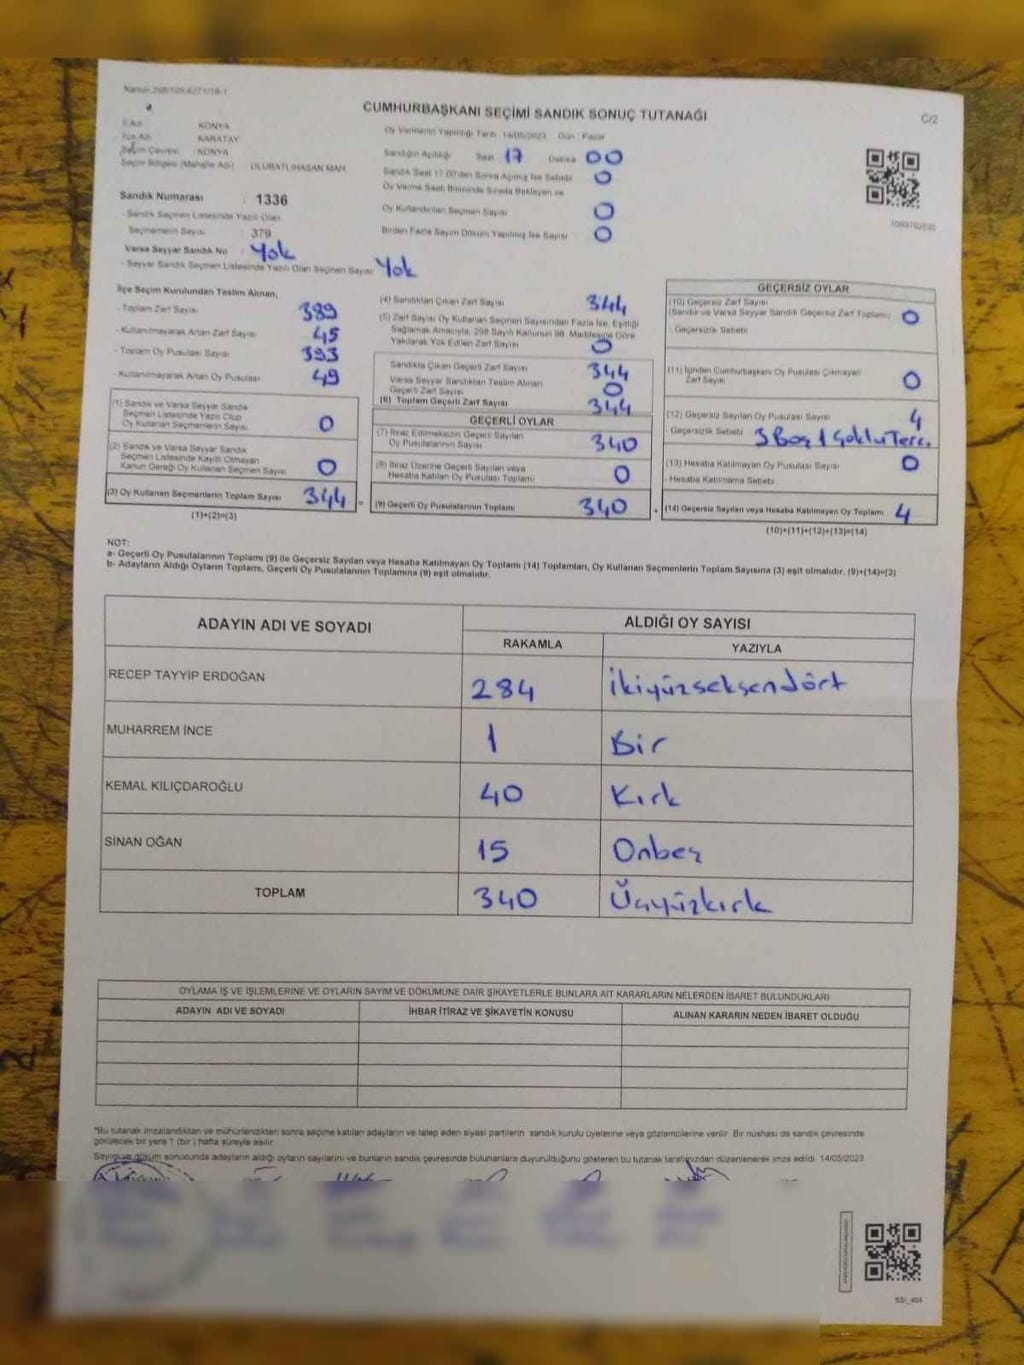 CUMHURBAŞKANI SEÇİMİ SANDIK SONUÇ TUTANAĞI
C/2
İl Adı KONYA
İlçe Adı KARATAY
Seçim Çevresi KONYA
Seçim Bölgesi (Mahalle Adı) ULUBATLIHASAN MAH.
Oy Vermenin Yapıldığı Tarih 14/05/2023 Gün Pazar
Sandığın Açıldığı Saat 17 Dakika 00
Sandık Saat 17:00'den Sonra Açılmış İse Sebebi 0
Oy Verme Saati Bitiminde Sırada Bekleyen ve
Oy Kullandırılan Seçmen Sayısı 0
Birden Fazla Sayım Döküm Yapılmış İse Sayısı 0
Sandık Numarası : 1336
- Sandık Seçmen Listesinde Yazılı Olan
Seçmenlerin Sayısı : 379
Varsa Seyyar Sandık No : Yok
- Seyyar Sandık Seçmen Listesinde Yazılı Olan Seçmen Sayısı: Yok
İlçe Seçim Kurulundan Teslim Alınan;
- Toplam Zarf Sayısı 389
- Kullanılmayarak Artan Zarf Sayısı 45
- Toplam Oy Pusulası Sayısı 393
- Kullanılmayarak Artan Oy Pusulası 49
(1) Sandık ve Varsa Seyyar Sandık
Seçmen Listesinde Yazılı Olup
Oy Kullanan Seçmenlerin Sayısı 0
(2) Sandık ve Varsa Seyyar Sandık
Seçmen Listesinde Kayıtlı Olmayan
Kanun Gereği Oy Kullanan Seçmen Sayısı 0
(3) Oy Kullanan Seçmenlerin Toplam Sayısı 344 =
(1)+(2)=(3)
(4) Sandıktan Çıkan Zarf Sayısı 344
(5) Zarf Sayısı Oy Kullanan Seçmen Sayısından Fazla İse, Eşitliği
Sağlamak Amacıyla, 298 Sayılı Kanunun 98. Maddesine Göre
Yakılarak Yok Edilen Zarf Sayısı 0
Sandıkta Çıkan Geçerli Zarf Sayısı 344
Varsa Seyyar Sandıktan Teslim Alınan
Geçerli Zarf Sayısı 0
(6) Toplam Geçerli Zarf Sayısı 344
GEÇERLİ OYLAR
(7) İtiraz Edilmeksizin Geçerli Sayılan
Oy Pusulalarının Sayısı 340
(8) İtiraz Üzerine Geçerli Sayılan veya
Hesaba Katılan Oy Pusulası Toplamı 0
(9) Geçerli Oy Pusulalarının Toplamı 340 +
GEÇERSİZ OYLAR
(10) Geçersiz Zarf Sayısı
(Sandık ve Varsa Seyyar Sandık Geçersiz Zarf Toplamı) 0
- Geçersizlik Sebebi
(11) İçinden Cumhurbaşkanı Oy Pusulası Çıkmayan
Zarf Sayısı 0
(12) Geçersiz Sayılan Oy Pusulası Sayısı 4
- Geçersizlik Sebebi 3 Boş 1 Çoklu Terc.
(13) Hesaba Katılmayan Oy Pusulası Sayısı 0
- Hesaba Katılmama Sebebi
(14) Geçersiz Sayılan veya Hesaba Katılmayan Oy Toplamı 4
(10)+(11)+(12)+(13)=(14)
NOT:
a- Geçerli Oy Pusulalarının Toplamı (9) ile Geçersiz Sayılan veya Hesaba Katılmayan Oy Toplamı (14) Toplamları, Oy Kullanan Seçmenlerin Toplam Sayısına (3) eşit olmalıdır. (9)+(14)=(3)
b- Adayların Aldığı Oyların Toplamı, Geçerli Oy Pusulalarının Toplamına (9) eşit olmalıdır.
ADAYIN ADI VE SOYADI ALDIĞI OY SAYISI
RAKAMLA YAZIYLA
RECEP TAYYİP ERDOĞAN 284 ikiyüzseksendört
MUHARREM İNCE 1 Bir
KEMAL KILIÇDAROĞLU 40 Kırk
SİNAN OĞAN 15 Onbeş
TOPLAM 340 Üçyüzkırk
OYLAMA İŞ VE İŞLEMLERİNE VE OYLARIN SAYIM VE DÖKÜMÜNE DAİR ŞİKAYETLERLE BUNLARA AİT KARARLARIN NELERDEN İBARET BULUNDUKLARI
ADAYIN ADI VE SOYADI İHBAR İTİRAZ VE ŞİKAYETİN KONUSU ALINAN KARARIN NEDEN İBARET OLDUĞU
*Bu tutanak imzalandıktan ve mühürlendikten sonra seçime katılan adayların ve talep eden siyasi partilerin sandık kurulu üyelerine veya gözlemcilerine verilir. Bir nüshası da sandık çevresinde
görülecek bir yere 1 (bir) hafta süreyle asılır.
Sayım ve döküm sonucunda adayların aldığı oyların sayılarını ve bunların sandık çevresinde bulunanlara duyurulduğunu gösteren bu tutanak tarafımızdan düzenlenerek imza edildi. 14/05/2023
SSI_404